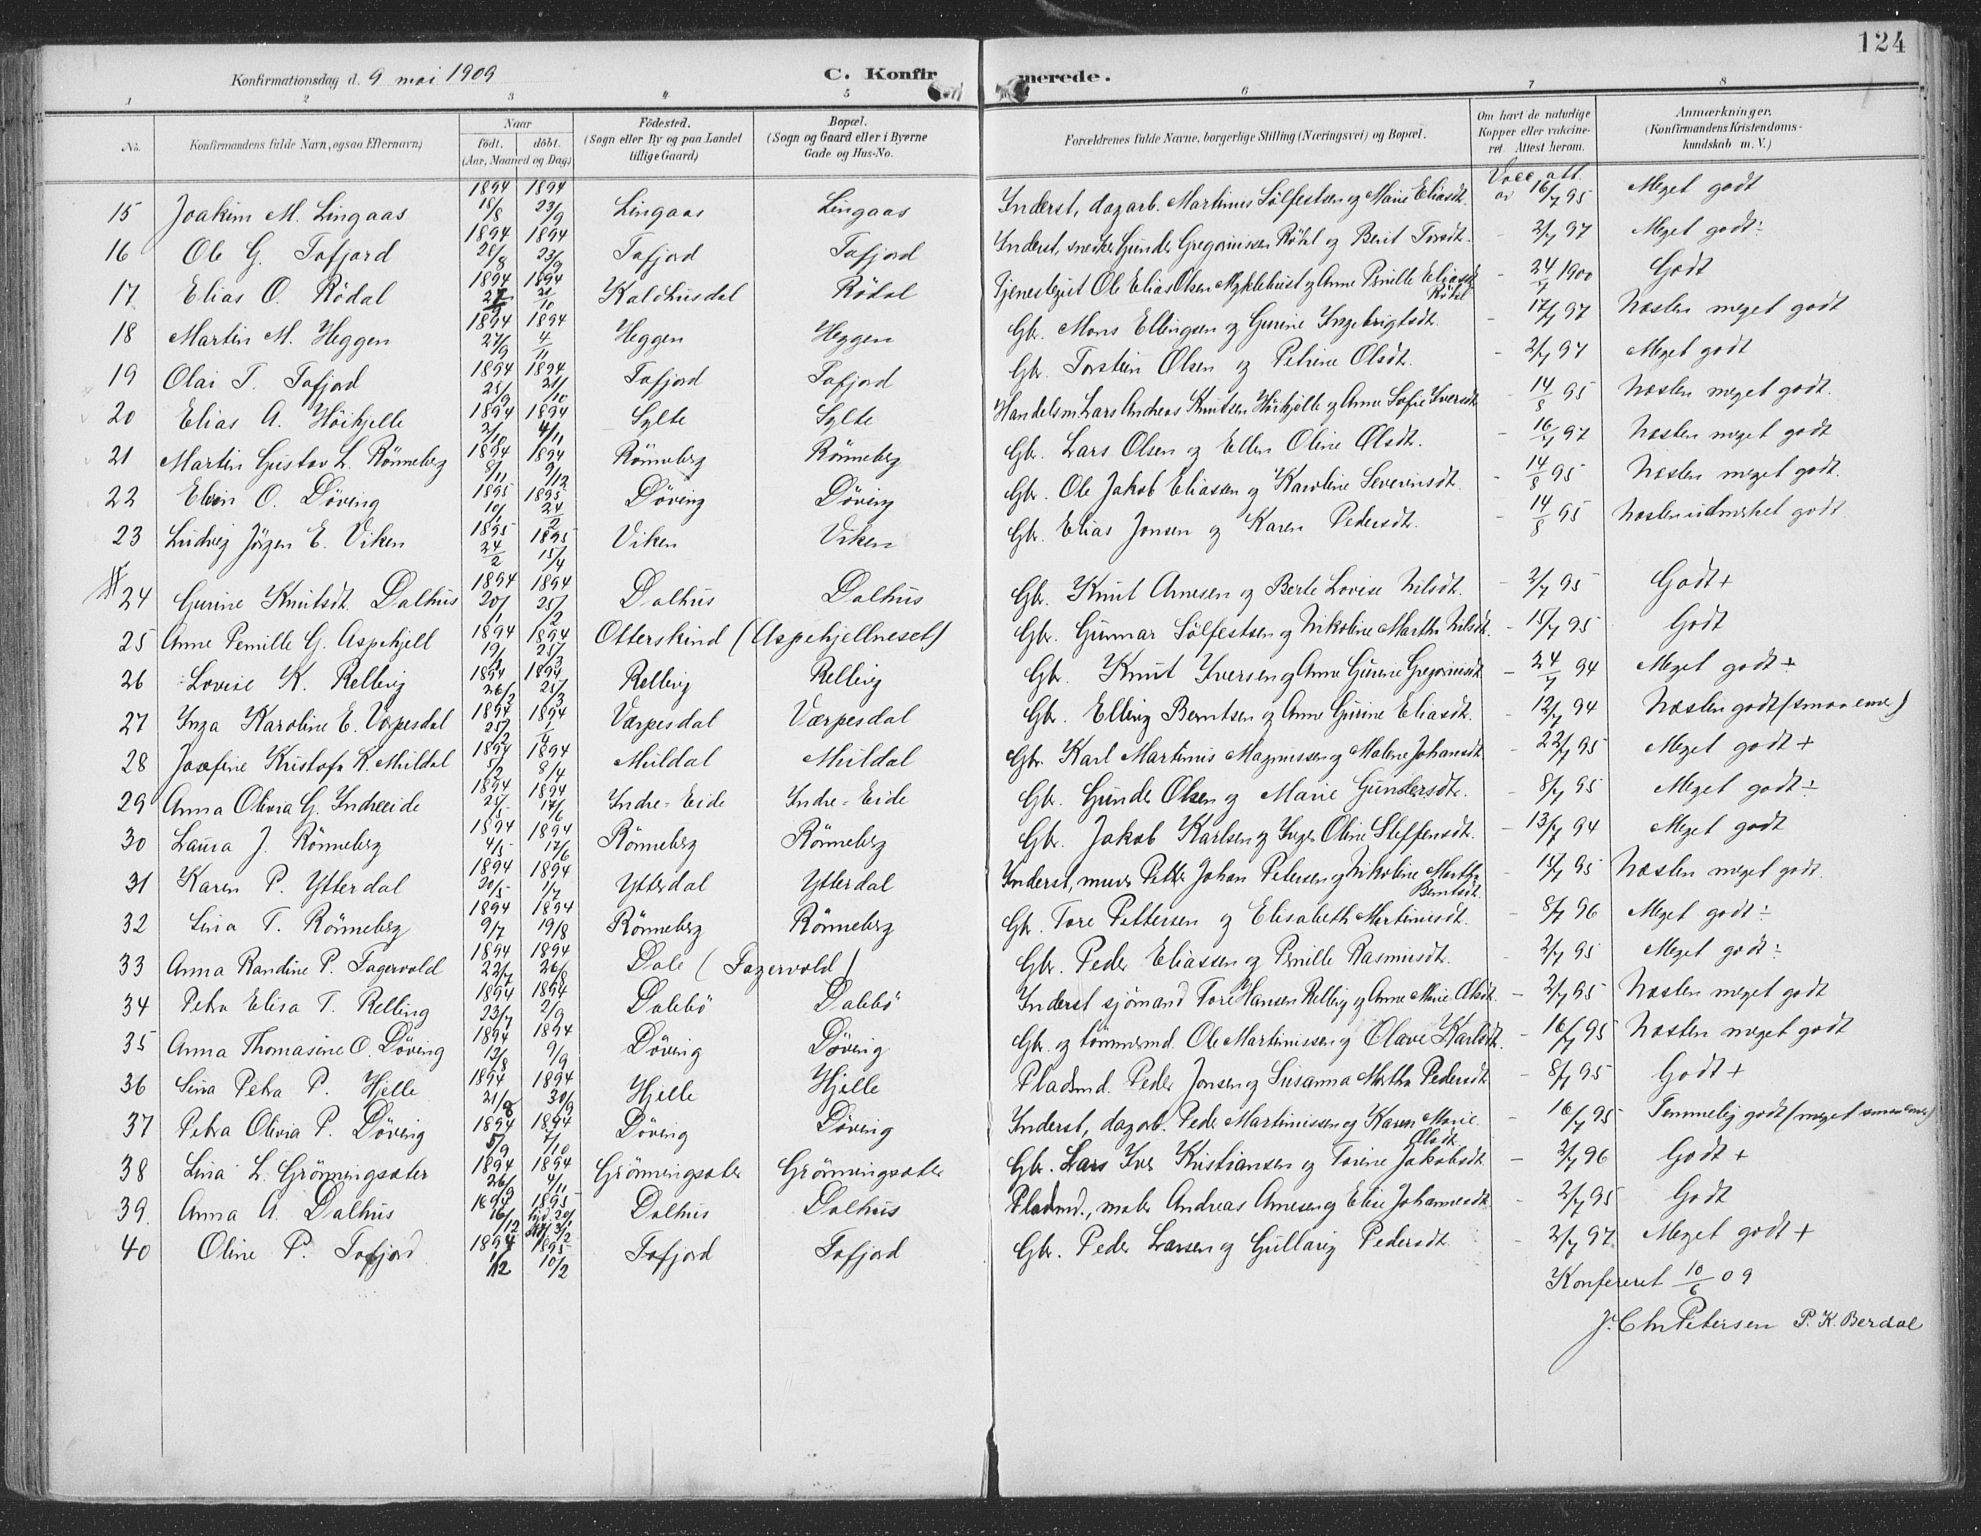 124
Konfirmationsdag d. 9 mai 1909
C. Konfirmerede.
1 2 3 4 5 6 7 8
No. Konfirmandens fulde Navn, ogsaa Efternavn) Naar födt. döbt. (Aar, Maaned og Dag) Födested. (Sogn eller By og paa Landet tillige Gaard) Bopæl. (Sogn og Gaard eller i Byerne Gade og Hus-No. Forældrenes fulde Navne, borgerlige Stilling (Næringsvei) og Bopæl. Om havt de naturlige Kopper eller vakcineret. Attest herom. Anmærkninger. (Konfirmandens Kristendomskundskab m. V.)
15 Joakim M. Lingaas 1894 18/8 1894 23/9 Lingaas Lingaas Inderst, dagarb. Martinus Sölfestsen og Marie Eliasdt. Vacc. att. av 16/7 95 Meget godt
16 Ole G. Tafjord 1894 28/8 1894 23/9 Tafjord Tafjord Inderst, snedker Gunder Gregoriussen Rödal og Berit Torsdt. - 2/7 97 Meget godt÷
17 Elias O. Rödal 1894 1894 21/10 Kaldhusdal Rödal Tjenestegut Ole Elias Olsen Myklebust og Anne Pernille Eliasdt. Rödal - 24/7 1900 Godt
18 Martin M. Heggen 1894 27/9 1894 4/11 Heggen Heggen Gbr. Mons Ellingsen og Gurine Ingebrigtsdt. - 17/7 97 Næsten meget godt
19 Olai T. Tafjord 1894 25/9 1894 21/10 Tafjord Tafjord Gbr. Torstein Olsen og Petrine Olsdt. - 2/7 97 Meget godt
20 Elias A. Höikjelle 1894 2/10 1894 4/11 Sylte Sylte Handelsm. Lars Andreas Knutsen Höikjelle og Anne Sofie Iversdt. - 14/8 95 Næsten meget godt.
21 Martin Gustav L. Rönneberg 1894 8/11 1894 9/12 Rönneberg Rönneberg Gbr. Lars Olsen og Ellen Oline Olsdt. - 16/7 97 Næsten meget godt
22 Elvin O. Döving 1895 10/1 1895 24/2 Döving Döving Gbr. Ole Jakob Eliassen og Karoline Severinsdt. - 14/8 95 Næsten meget godt.
23 Ludvig Jörgen E. Viken 1895 24/2 1895 15/4 Viken Viken Gbr. Elias Jonsen og Karen Pedersdt. - 14/8 95 Næsten udmerket godt.
24 Gurine Knutsdt. Dalhus 1894 20/1 1894 25/2 Dalhus Dalhus Gbr. Knut Arnesen og Berte Lovise Nilsdt. - 2/7 95 Godt+
25 Anne Pernille G. Aspehjell 1894 19/1 1894 25/3 Otterskind (Aspehjellneset) Gbr. Gunnar Sölfestsen og Nikoline Martha Nilsdt. - 15/7 95 Godt
26 Lovise K. Relling 1894 26/2 1894 25/3 Relling Relling Gbr. Knut Iversen og Anne Gurine Gregoriusdt. - 24/7 94 Meget godt+
27 Inga Karoline E. Værpesdal 1894 25/2 1894 1/4 Værpesdal Værpesdal Gbr. Elling Berntsen og Anne Gurine Eliasdt. - 12/7 94 Næsten godt (smaa evner)
28 Josefine Kristofa K. Muldal 1894 5/2 1894 8/4 Muldal Muldal Gbr. Karl Martinus Magnussen og Malene Johansdt. - 22/7 95 Meget godt +
29 Anna Olivia G. Indreeide 1894 25/5 1894 17/6 Indre-Eide Indre-Eide Gbr. Gunder Olsen og Marie Gundersdt. - 8/7 95 Meget godt÷
30 Laura J. Rönneberg 1894 4/5 1894 17/6 Rönneberg Rönneberg Gbr. Jakob Karlsen og Inger Oline Steffensdt. - 13/7 94 Meget godt
31 Karen P. Ytterdal 1894 20/5 1894 1/7 Ytterdal Ytterdal Inderst, murer Petter Johan Petersen og Nikoline Martha Berntsdt. - 15/7 95 Næsten meget godt.
32 Lina T. Rönneberg 1894 9/7 1894 19/8 Rönneberg Rönneberg Gbr. Tore Pettersen og Elisabeth Martinusdt. - 8/7 96 Meget godt÷
33 Anna Randine P. Fagervold 1894 22/7 1894 26/8 Dale (Fagervold) Gbr. Peder Eliassen og Pernille Rasmusdt. - 2/7 95 Meget godt÷
34 Petra Elisa T. Relling 1894 23/7 1894 2/9 Dalebö Dalebö Inderst sjömand Tore Hansen Relling og Anne Marie Olsdt. - 2/7 95 Næsten meget godt
35 Anna Thomasine O. Döving 1894 12/8 1894 9/9 Döving Döving Gbr. og tömmermd. Ole Martinussen og Olave Karlsdt. - 16/7 95 Næsten meget godt
36 Lina Petra P. Hjelle 1894 21/8 1894 30/9 Hjelle Hjelle Pladsmd. Peder Jonsen og Susanna Martha Pedersdt. - 8/7 95 Godt +
37 Petra Olivia P. Döving 1894 5/9 1894 7/10 Döving Döving Inderst, dagarb. Peder Martinussen og Karen Marie Olsdt. - 16/7 95 Temmelig godt (meget smaa evner)
38 Lina L. Grönningsæter 1894 26/9 1894 4/11 Grönningsæter Grönningsæter Gbr. Lars Iver Kristiansen og Torine Jakobsdt. - 2/7 96 Godt +
39. Anna A. Dalhus 1894 16/12 1895 hjd. 20/1 Dalhus Dalhus Pladsmd., maler Andreas Arnesen og Elise Johannesdt. - 2/7 95 Godt
40 Oline P. Tafjord 1894 1/12 1895 10/2 Tafjord Tafjord Gbr. Peder Larsen og Gullaug Pedersdt. - 2/7 97 Meget godt +
Konfereret 10/6 09
J. Chr Petersen P. K. Berdal